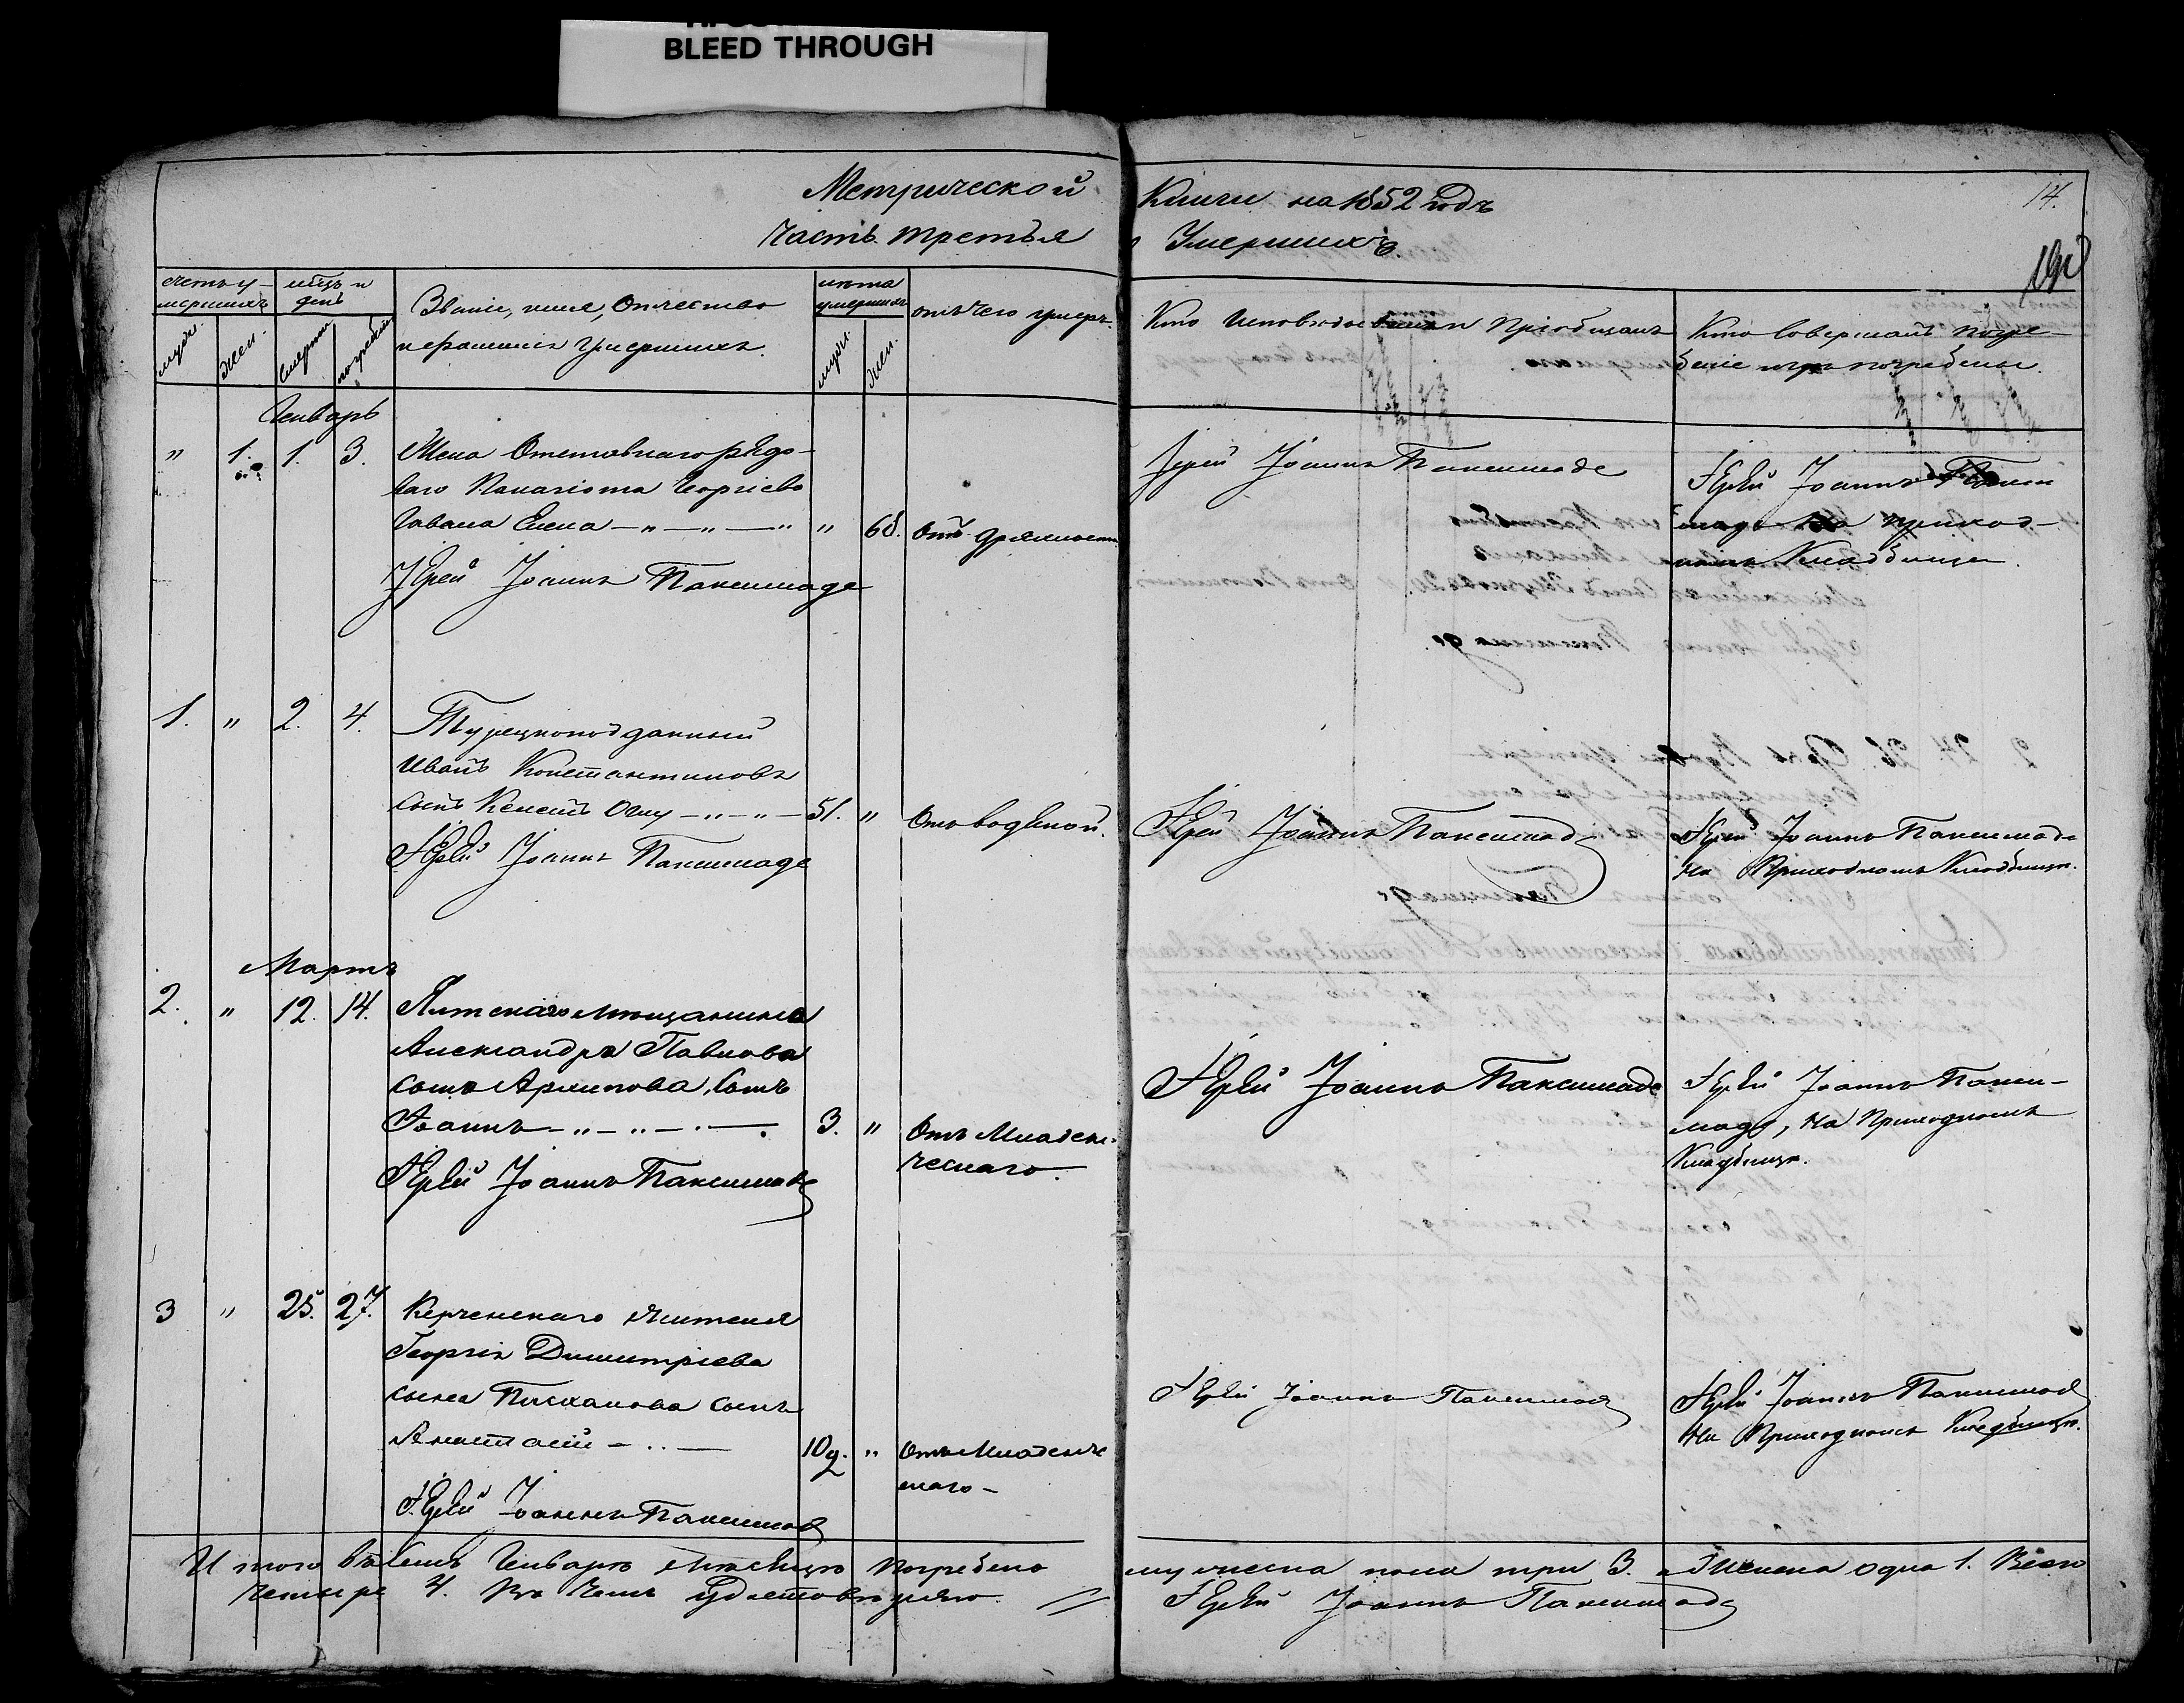 BLEED THROUGH
Метрической Книги на 1852 годъ
14.
Часть третья Умершихъ
Счетъ у-
мершихъ
мѣсяцъ и
день
Званіе, имя, Отчество
и фамилія Умершихъ.
лѣта
умершихъ
отъ чего умеръ.
Кто Исповѣдовалъ и Пріобщалъ
Кто Совершалъ погре-
беніе и гдѣ погребены.
муж.
жен.
смерти
погребенія
муж.
жен.
Январь
" 1. 1. 3. Жена Отставнаго рядо-
ваго Панагіота Георгіева
Елена — " — " — " " 68. Отъ дряхлости
Іерей Іоаннъ Паксимаде
Іерей Іоаннъ Паксимаде
Іерей Іоаннъ Пакси
маде На приход-
номъ Кладбище.
1. " 2. 4. Турецкоподданный
Иванъ Константиновъ
сынъ Оглу — " — " — 51. " Отъ водяной.
Іерей Іоаннъ Паксимаде
Іерей Іоаннъ Паксимаде
Іерей Іоаннъ Паксимаде
На Приходномъ Кладбищѣ.
Мартъ
2. " 12. 14. Ялтскаго мѣщанина
Александра Павлова
сына Архипова, Сынъ
Іоаннъ — " — " — 3. " Отъ Младен-
ческаго.
Іерей Іоаннъ Паксимаде
Іерей Іоаннъ Паксимаде
Іерей Іоаннъ Пакси-
маде, На Приходномъ
Кладбищѣ.
3 " 25. 27. Керченскаго жителя
Георгія Димитріева
сына сынъ
Анастасій — " — 10 д. " Отъ Младенче
скаго —
Іерей Іоаннъ Паксимаде
Іерей Іоаннъ Паксимаде
Іерей Іоаннъ Паксимаде
На Приходномъ Кладбищѣ.
И того въ семъ Январѣ мѣсяцѣ Погребено мужеска пола три 3. Женска одна 1. Всего
четыре 4. Въ чемъ Удостовѣряю Іерей Іоаннъ Паксимаде